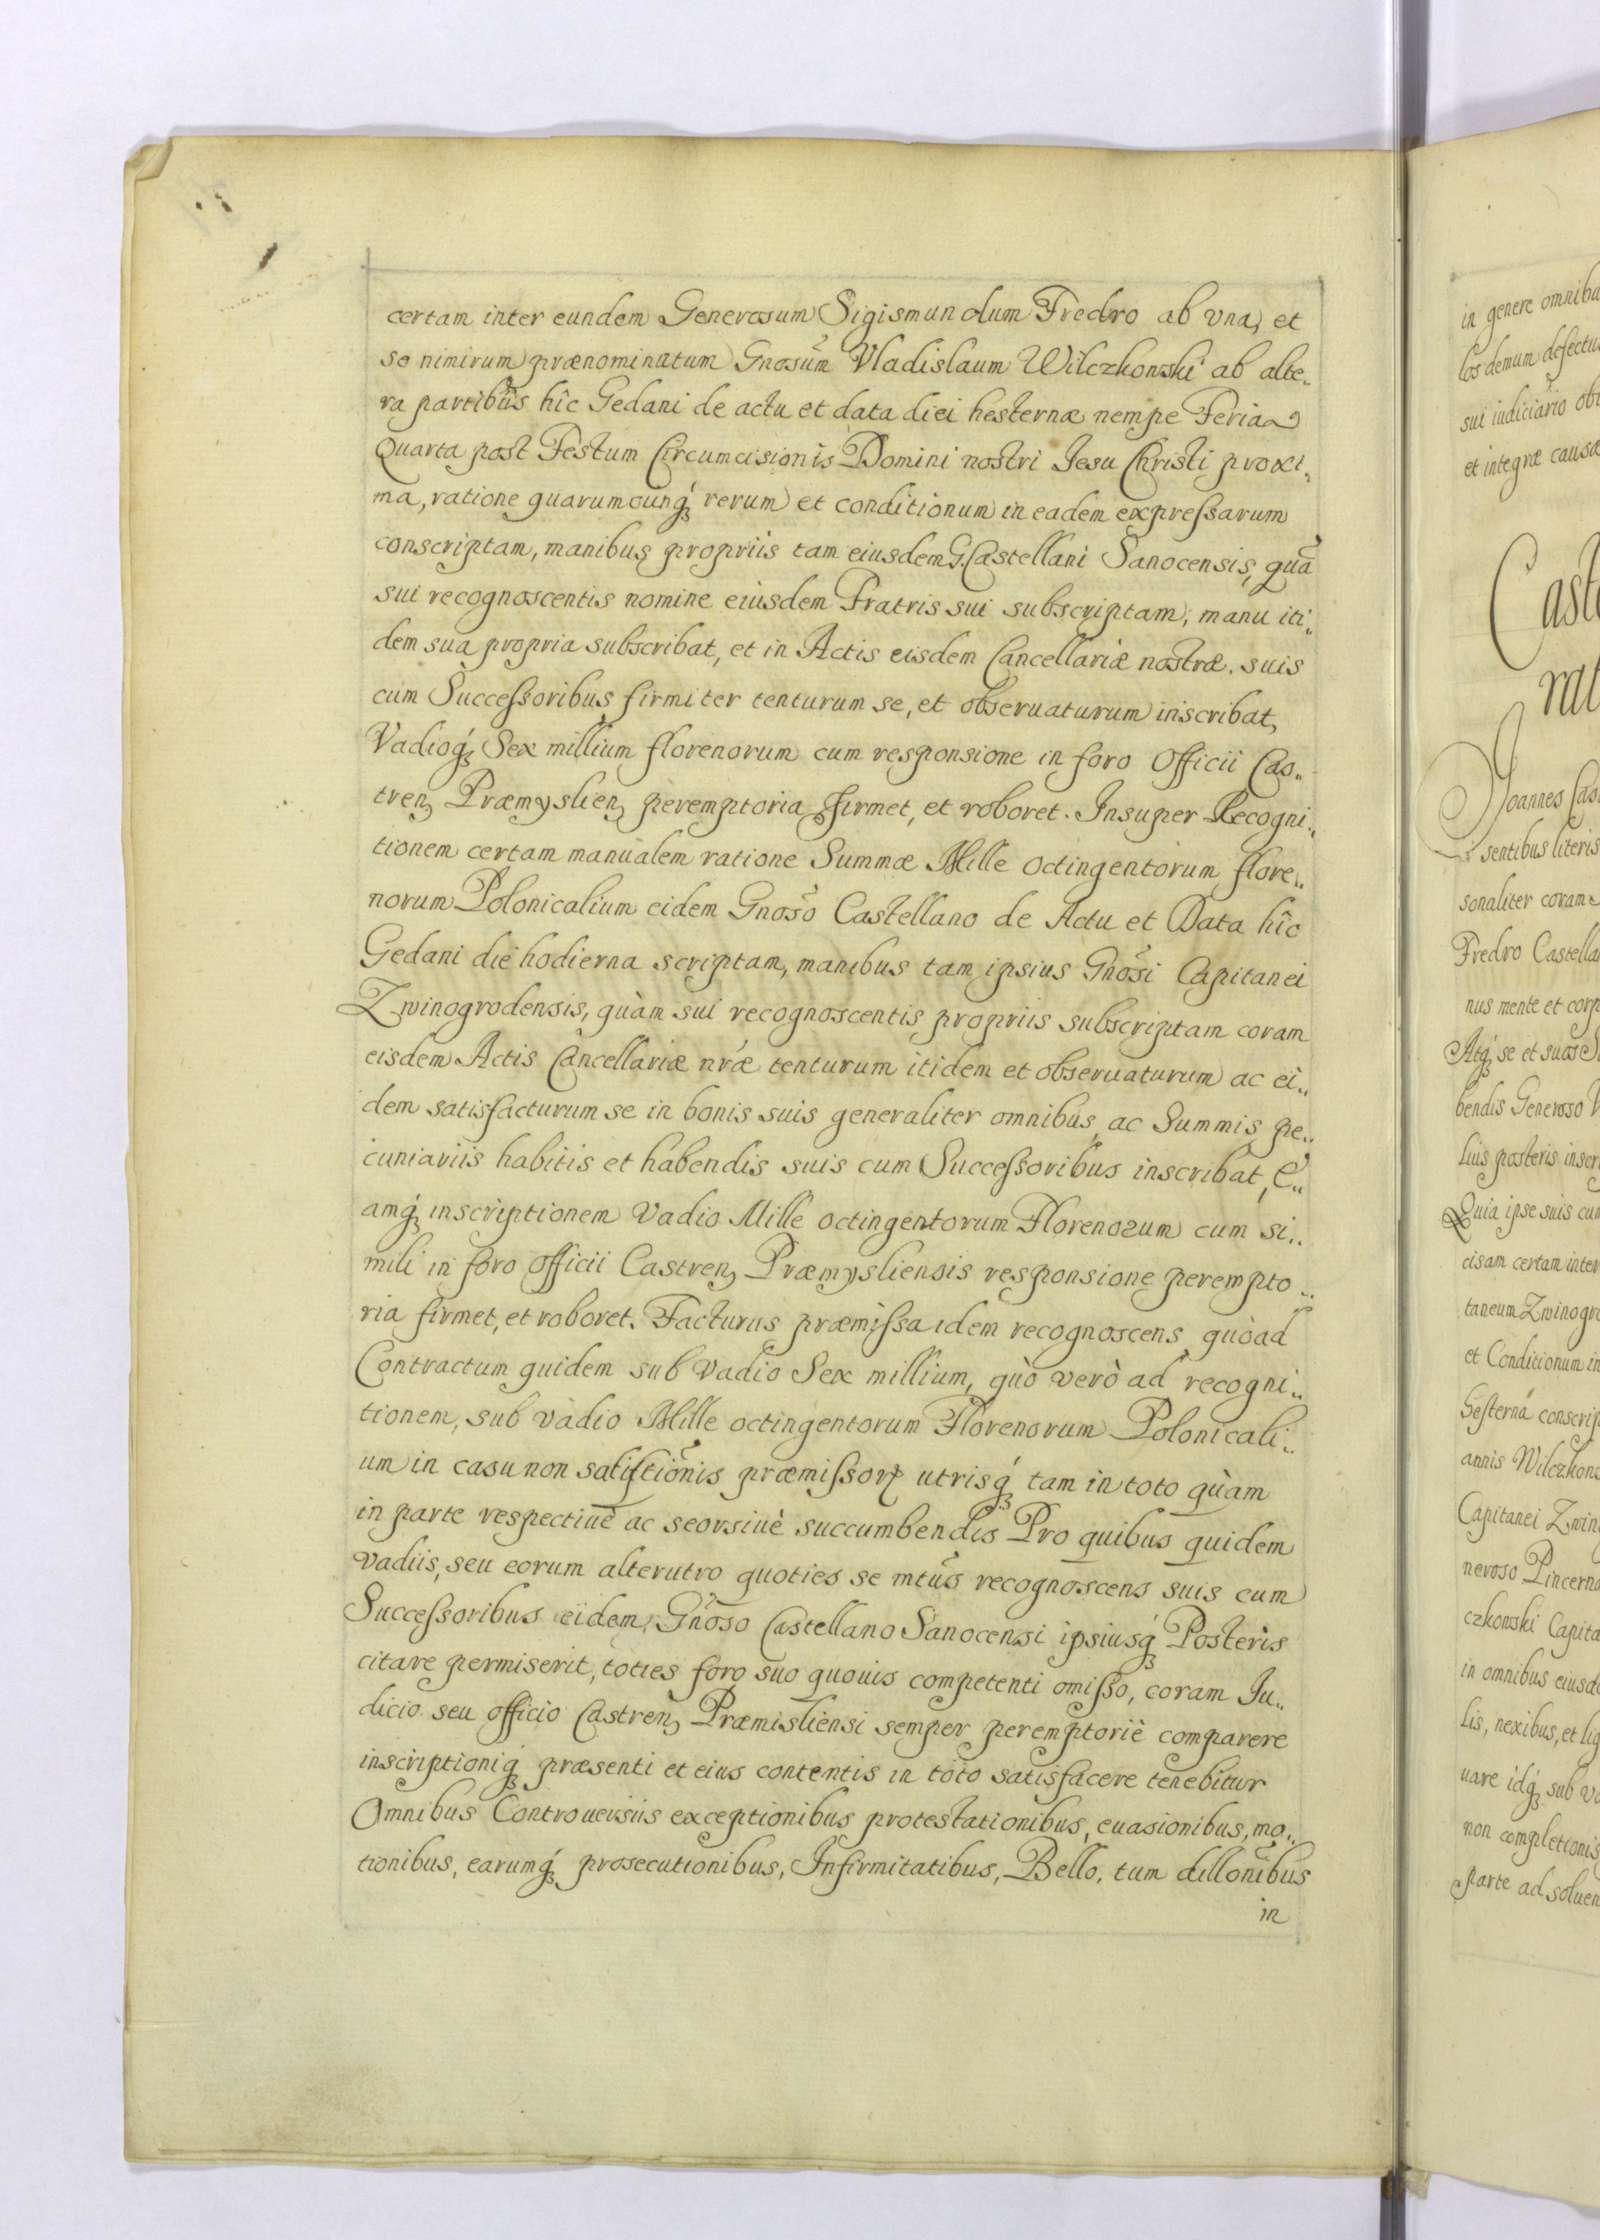 certam inter eundem Generosum Sigismundum Fredro ab vna, et
se nimirum prænominatum Gnosũm Vladislaum Wilczkonski ab alte..
ra partibus hîc Gedani de actu et data diei hesternæ nempe Feria
Quarta post Festum Circumcisionis Domini nostri Jesu Christi proxi..
ma, ratione quarumcunq́ꝫ rerum et conditionum in eadem expressarum
conscriptam, manibus propriis tam eiusdem G. Castellani Sanocensis, quã
sui recognoscentis nomine eiusdem Fratris sui subscriptam, manu iti..
dem sua propria subscribat, et in Actis eisdem Cancellariæ nostræ. suis
cum Successoribus firmiter tenturum se, et obseruaturum inscribat,
Vadioq́ꝫ Sex millium florenorum cum responsione in foro Officii Cas..
trenꝫ Præmyslienꝫ peremptoria firmet, et roboret. Insuper Recogni..
tionem certam manualem ratione Summæ Mille octingentorum flore..
norum Polonicalium eidem Gnosõ Castellano de Actu et Data hîc
Gedani die hodierna scriptam, manibus tam ipsius Gnõsi Capitanei
Zwinogrodensis, quàm sui recognoscentis propriis subscriptam coram
eisdem Actis Cancellariæ nr̃æ tenturum itidem et obseruaturum ac ei..
dem satisfacturum se in bonis suis generaliter omnibus, ac Summis pe..
cuniariis habitis et habendis suis cum Successoribus inscribat, E..
amq́ꝫ inscriptionem Vadio Mille octingentorum Florenorum cum si..
mili in foro Officii Castrenꝫ Præmysliensis responsione perempto..
ria firmet, et roboret. Facturus præmissa idem recognoscens quòad
Contractum quidem sub Vadio Sex millium, quò verò ad recogni..
tionem, sub vadio Mille octingentorum Florenorum Polonicali..
um in casu non satisf̃ctionis præmissorꝝ utrisq́ꝫ tam in toto quàm
in parte respectiuè ac seorsiuè succumbendis Pro quibus quidem
vadiis, seu eorum alterutro quoties se mtũs recognoscens suis cum
Successoribus eidem Gnõso Castellano Sanocensi ipsiusq́ꝫ Posteris
citare permiserit, toties foro suo quouis competenti omisso, coram Ju..
dicio seu officio Castrenꝫ Præmisliensi semper peremptoriè comparere
inscriptioniq́ꝫ præsenti et eius contentis in toto satisfacere tenebitur
Omnibus Controuersiis exceptionibus protestationibus, euasionibus, mo..
tionibus, earumq́ꝫ prosecutionibus, Infirmitatibus, Bello, tum dillonĩbus
in
in genere omnibu
los demum defectu
sui iudiciario obi
et integræ causæ
Caste
rat
Joannes Cas
sentibus literis
sonaliter coram
Fredro Castella
nus mente et corp
Atq́ꝫ se et suos S
bendis Generoso V
lius posteris inscri
Quia ipse suis cum
cisam certam inter
taneum Zwinogro
et Conditionum in
hesternâ conscrip
annis Wilczkons
Capitanei Zwin
neroso Pincerna
czkonski Capita
in omnibus eiusd
lis, nexibus, et lig
uare idq́ꝫ sub va
non completionis
parte ad soluen